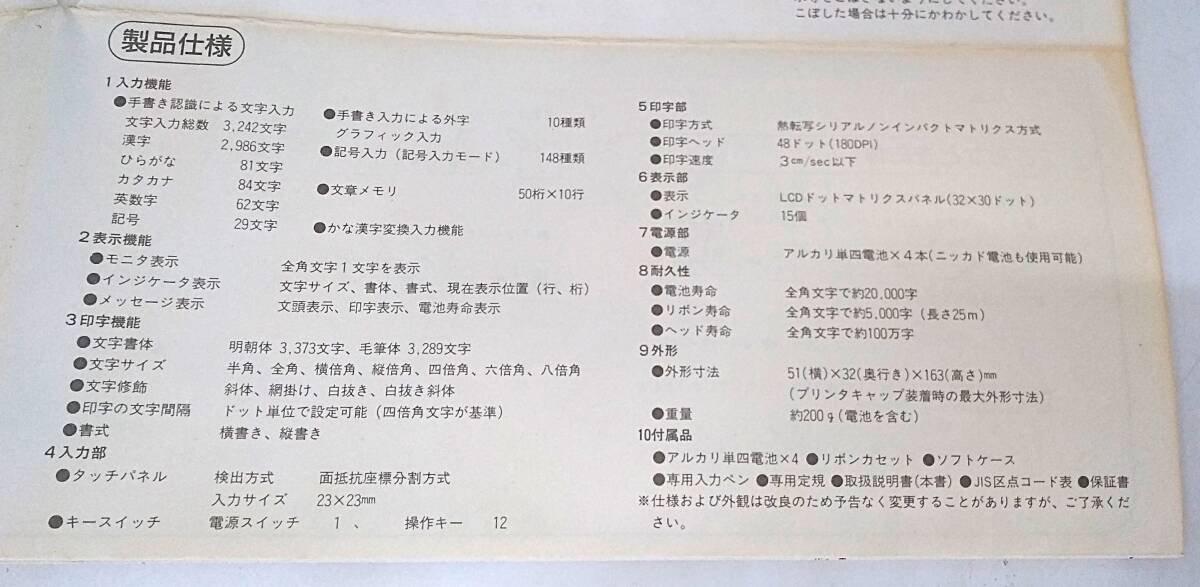 こぼした場合は十分にかわかしてください。
製品仕様
1入力機能
●手書き認識による文字入力
文字入力総数 3,242文字
漢字 2,986文字
ひらがな 81文字
カタカナ 84文字
英数字 62文字
記号 29文字
●手書き入力による外字 10種類
グラフィック入力
●記号入力(記号入力モード) 148種類
●文章メモリ 50桁×10行
●かな漢字変換入力機能
2表示機能
●モニタ表示 全角文字1文字を表示
●インジケータ表示 文字サイズ、書体、書式、現在表示位置(行、桁)
●メッセージ表示 文頭表示、印字表示、電池寿命表示
3印字機能
●文字書体 明朝体 3,373文字、毛筆体 3,289文字
●文字サイズ 半角、全角、横倍角、縦倍角、四倍角、六倍角、八倍角
●文字修飾 斜体、網掛け、白抜き、白抜き斜体
●印字の文字間隔 ドット単位で設定可能(四倍角文字が基準)
●書式 横書き、縦書き
4入力部
●タッチパネル 検出方式 面抵抗座標分割方式
入力サイズ 23×23mm
●キースイッチ 電源スイッチ 1、 操作キー 12
5印字部
●印字方式 熱転写シリアルノンインパクトマトリクス方式
●印字ヘッド 48ドット(180DPI)
●印字速度 3cm/sec以下
6表示部
●表示 LCDドットマトリクスパネル(32×30ドット)
●インジケータ 15個
7電源部
●電源 アルカリ単四電池×4本(ニッカド電池も使用可能)
8耐久性
●電池寿命 全角文字で約20,000字
●リボン寿命 全角文字で約5,000字(長さ25m)
●ヘッド寿命 全角文字で約100万字
9外形
●外形寸法 51(横)×32(奥行き)×163(高さ)mm
(プリンタキャップ装着時の最大外形寸法)
●重量 約200g(電池を含む)
10付属品
●アルカリ単四電池×4 ●リボンカセット ●ソフトケース
●専用入力ペン ●専用定規 ●取扱説明書(本書) ●JIS区点コード表 ●保証書
※仕様および外観は改良のため予告なく変更することがありますが、ご了承くだ
さい。